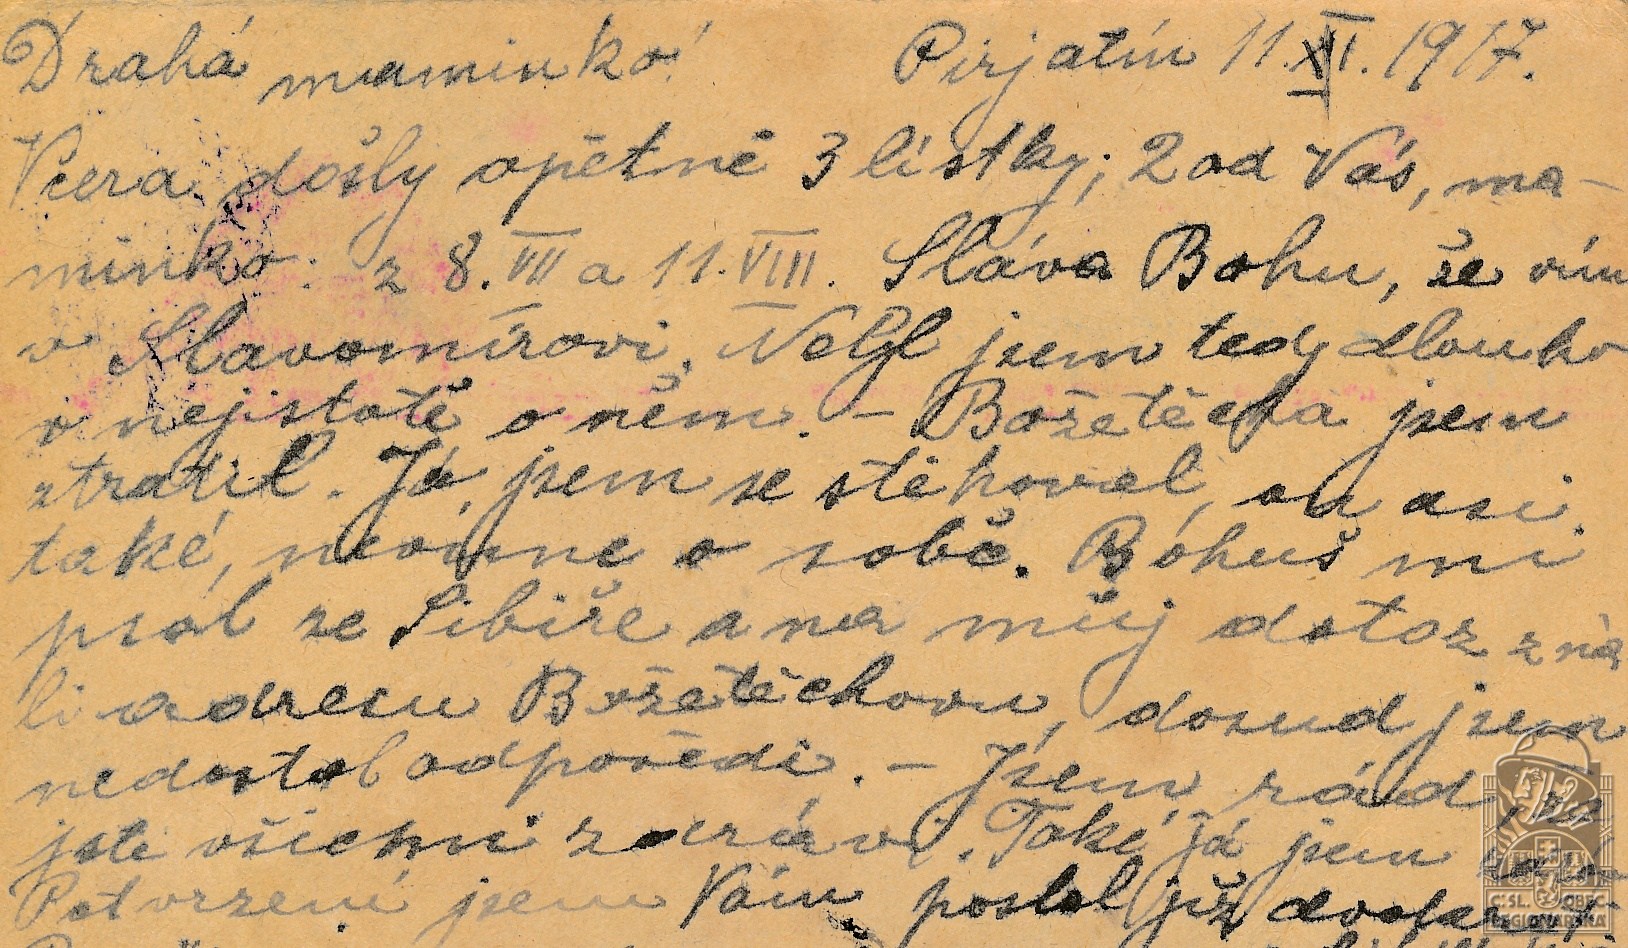 Drahá maminko! Pirjatín 11.XI. 1917.
Včera došly opětně 3 lístky; 2 od Vás, ma-
minko. z 8. VII a 11. VIII. Sláva Bohu, že vím
o Slavomírovi. Nebyl jsem tedy dlouho
v nejistotě o něm. – Božetěcha jsem
ztratil. Já jsem se stěhoval, on asi
také, nevíme o sobě. Bohuš mi
psal ze Sibiře a na můj dotaz zná
li adresu Božetěchovu, dosud jsem
nedostal odpovědi. – Jsem rád, že
jste všichni zdrávi. Také já jsem
Potvrzení jsem Vám poslal již
ČSL. OBEC
LEGIONÁŘSKÁ